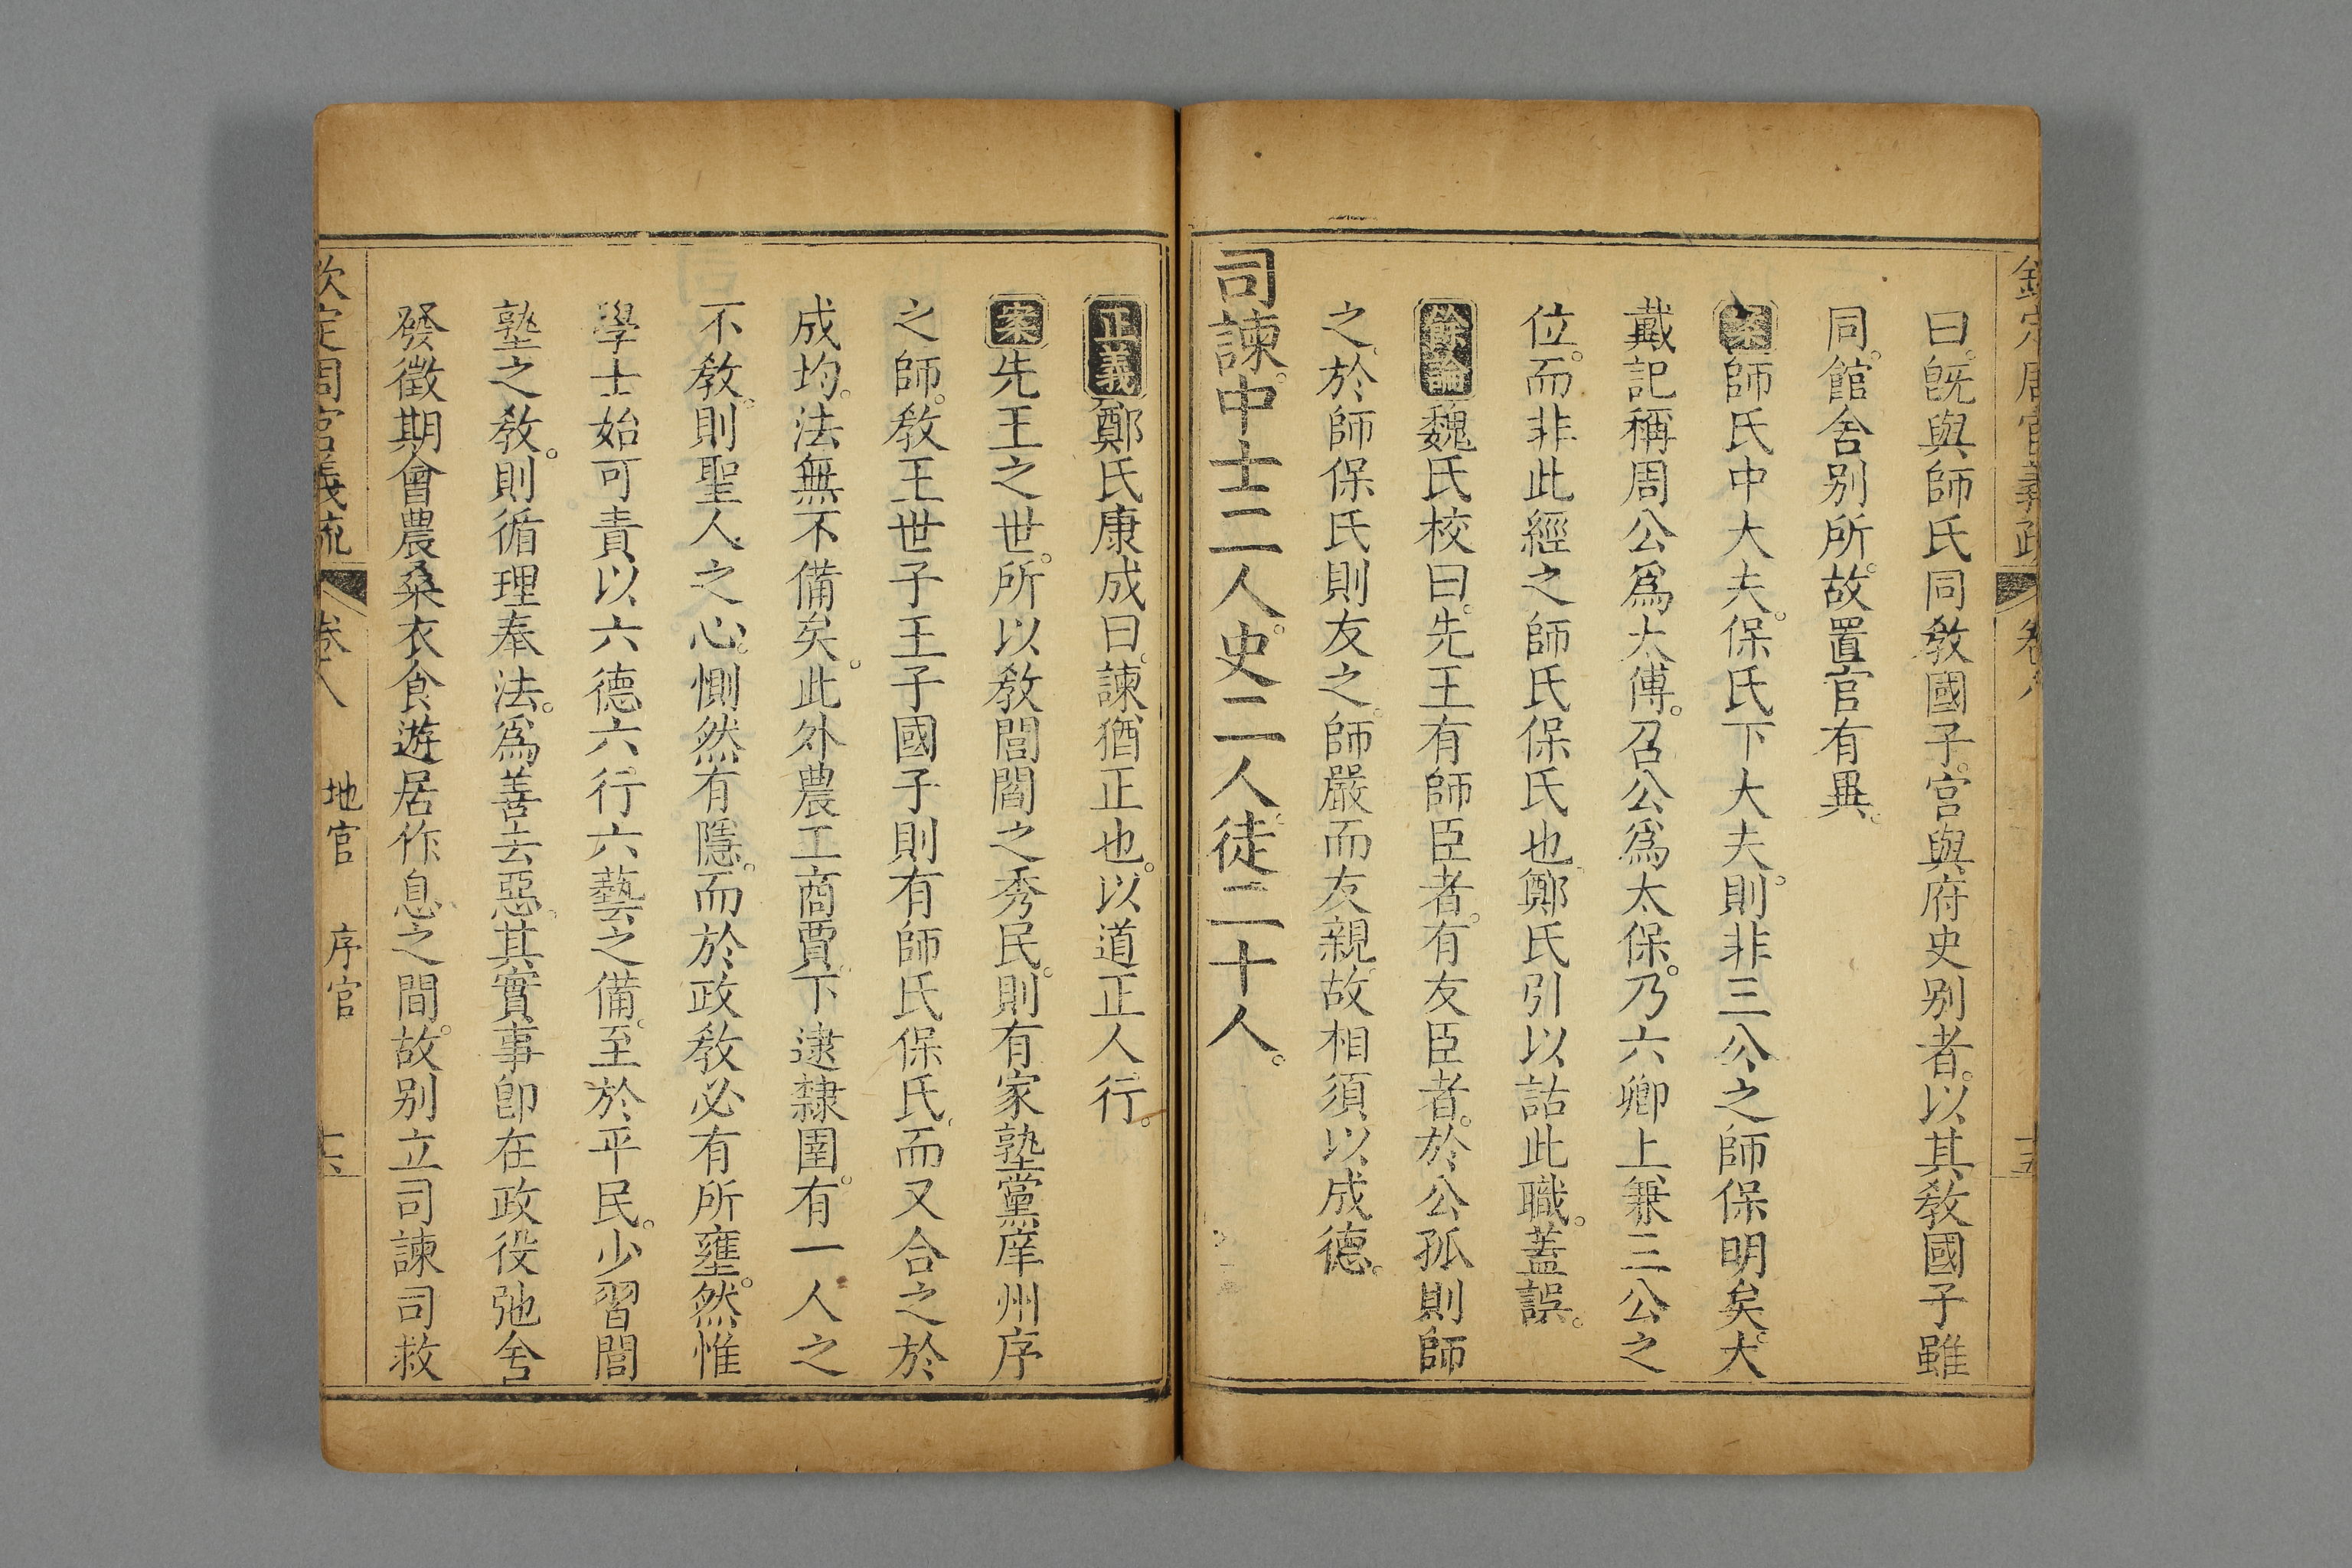 欽定周官義疏 卷八 十五
曰。旣與師氏同敎國子。官與府史别者。以其敎國子雖
同。館舍别所。故置官有異。
案師氏中大夫。保氏下大夫。則非三公之師保明矣。大
戴記稱周公爲太傅。召公爲太保。乃六卿上兼三公之
位。而非此經之師氏保氏也。鄭氏引以詁此職。蓋誤。
餘論魏氏校曰。先王有師臣者。有友臣者。於公孤則師
之。於師保氏則友之。師嚴而友親。故相須以成德。
司諫。中士二人。史二人。徒二十人。
正義鄭氏康成曰。諫猶正也。以道正人行。
案先王之世。所以敎閭閻之秀民。則有家塾黨庠州序
之師。敎王世子王子國子則有師氏保氏。而又合之於
成均。法無不備矣。此外農工商賈。下逮隸圉。有一人之
不敎。則聖人之心。惻然有隱。而於政敎必有所壅。然惟
學士始可責以六德六行六藝之備。至於平民。少習閭
塾之敎。則循理奉法。爲善去惡。其實事卽在政役弛舍
發徵期會農桑衣食遊居作息之間。故别立司諫司救
欽定周官義疏 卷八 地官 序官 十六